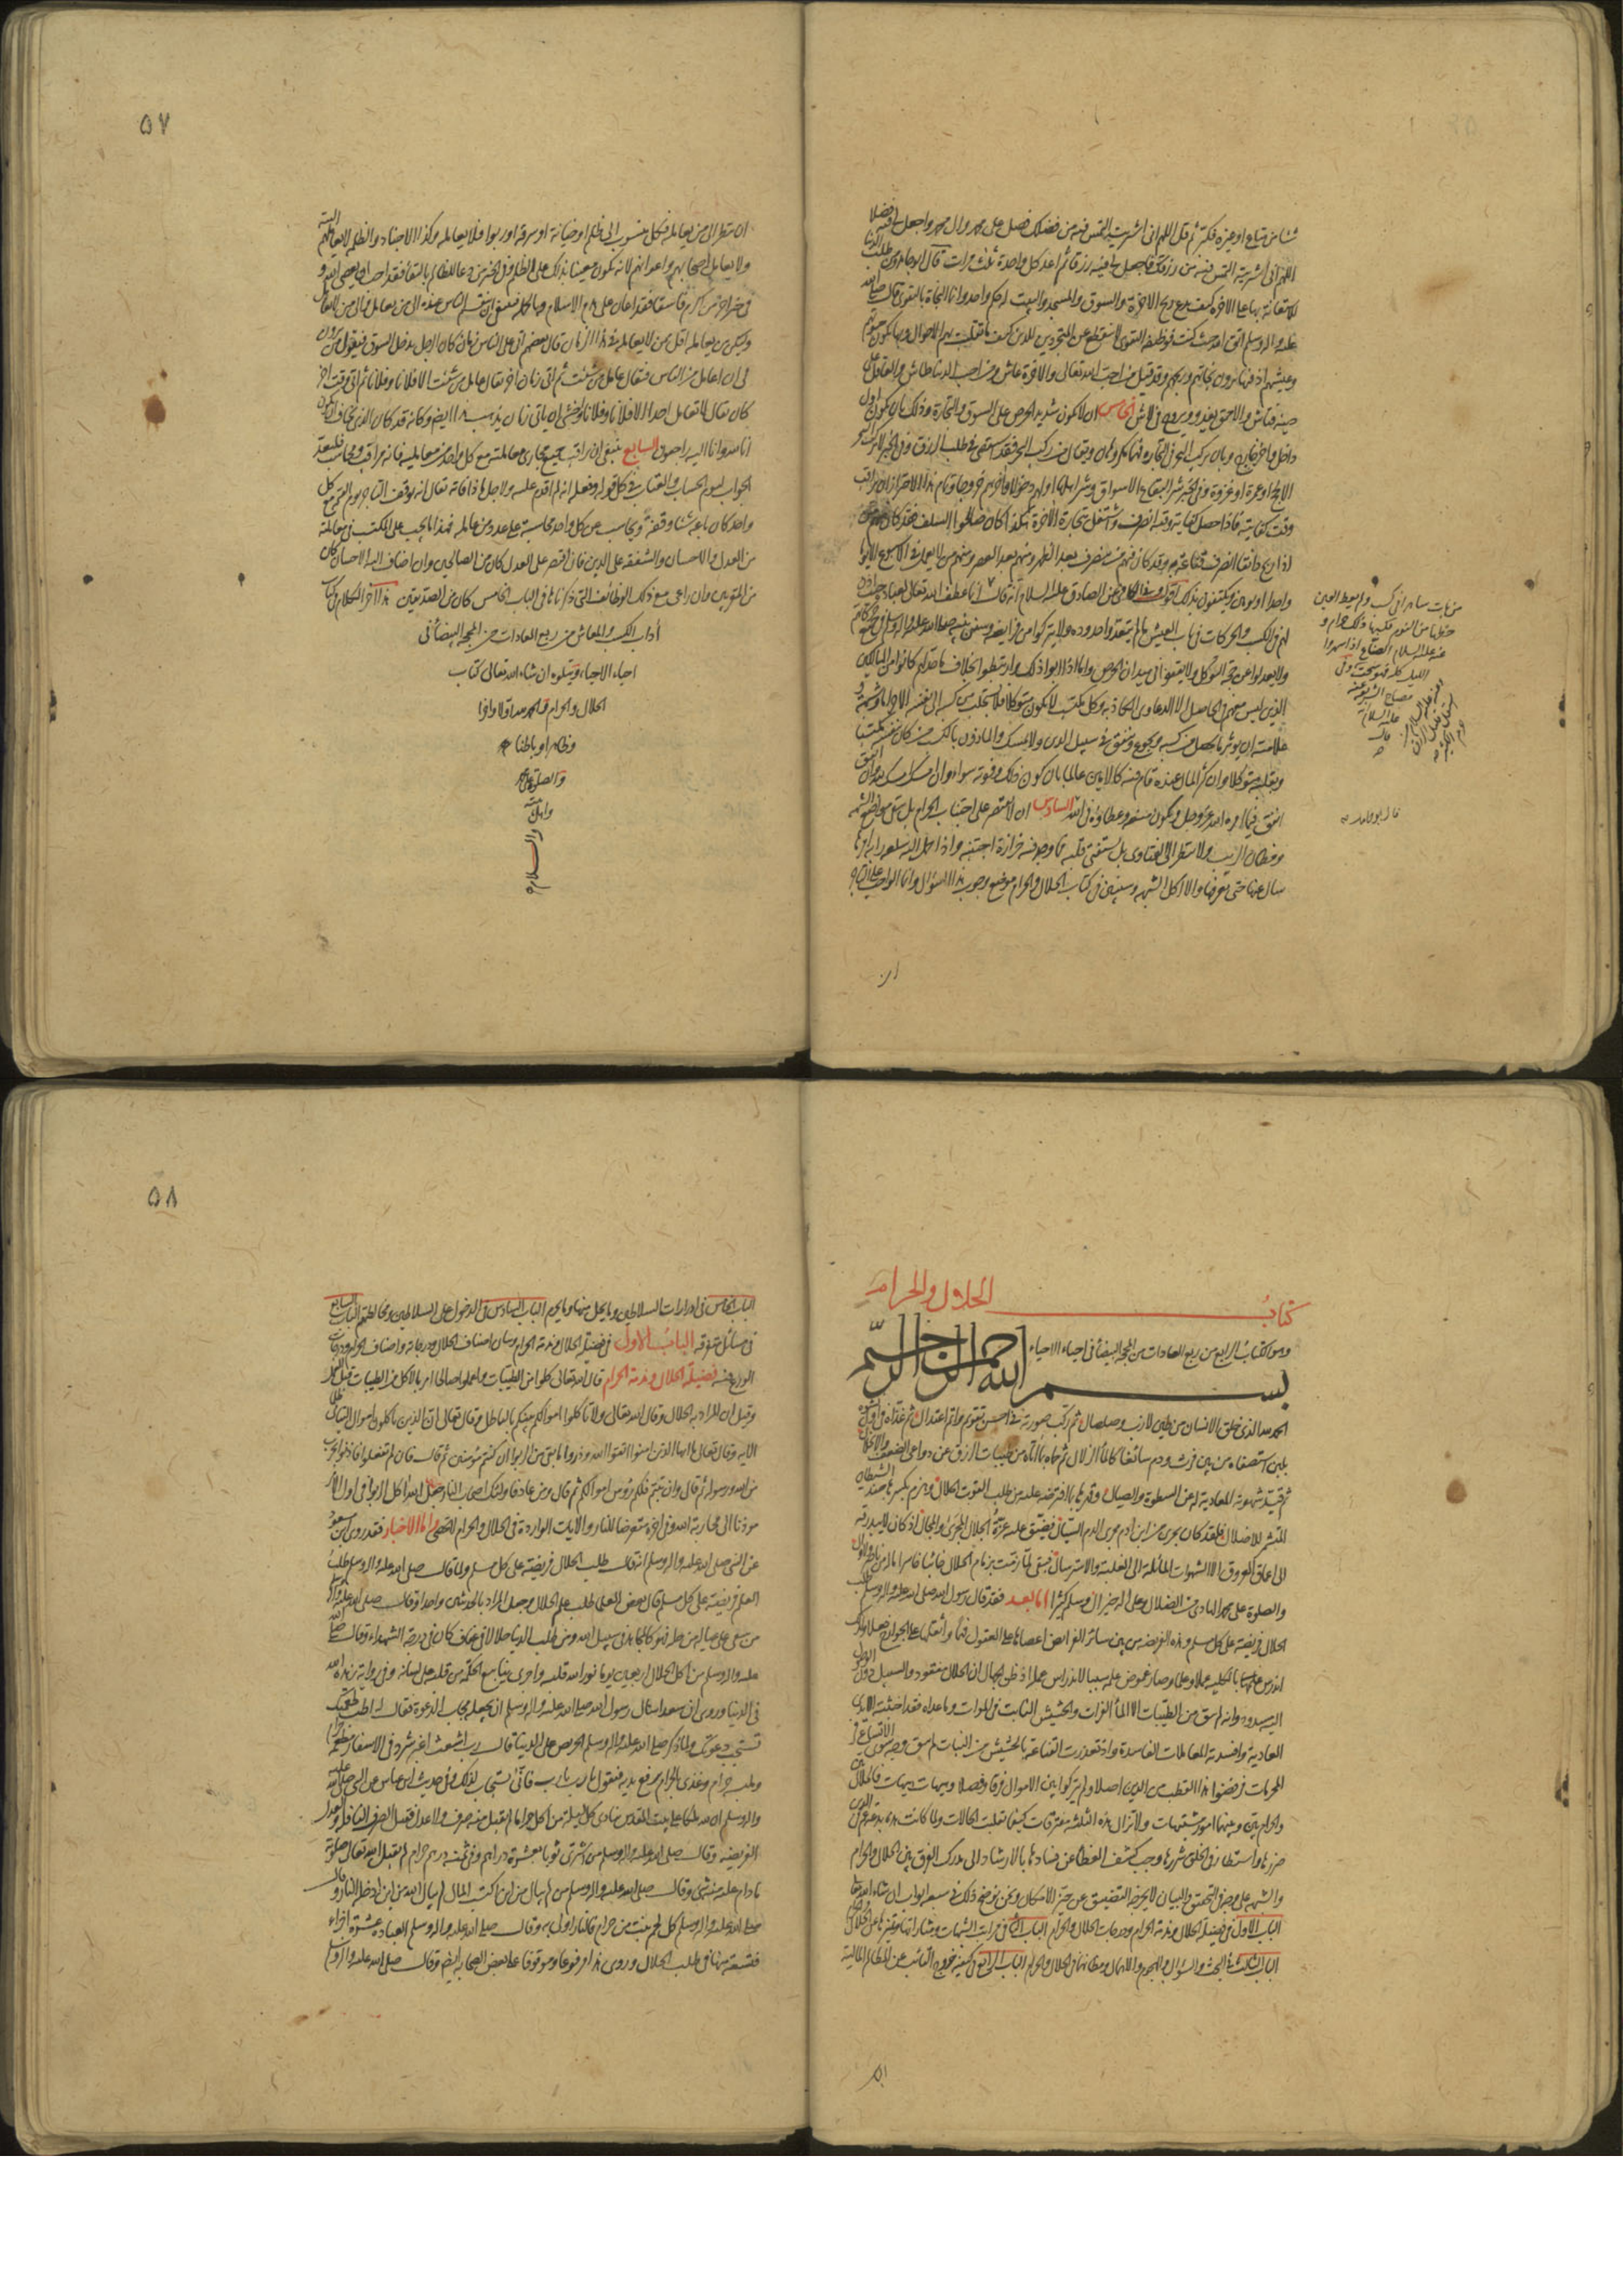 شئا من متاع او غيره فكبر ثم قل اللهم انى اشتريته التمس فيه من فضلك فصل على محمد وال محمد واجعل لى فيه فضلا
اللهم انى اشتريته التمس فيه من رزقك فاجعل لى فيه رزقا ثم اعد كل واحدة ثلث مرات قال ابو حامد ومن طلب الدنيا
للاستعانة بها على الاخرة كيف يدع ربح الاخرة والسوق والمسجد والبيت له حكم واحد وانما النجاة بالتقوى قال صلى الله
عليه واله وسلم اتق الله حيث كنت فوظيفة التقوى لا ينقطع عن المتجردين للدين كيف ما تقلبت بهم الاحوال وبها يكون حيوتهم
وعيشهم اذ فيها يرون تجارتهم وربحهم وقد قيل من احب الله تعالى والاخرة عاش ومن احب الدنيا طاش والعاقل عن
عيبه فتاش والاحمق يغدو ويروح فى لاش الخامس ان لا يكون شديد الحرص على السوق والتجارة وذلك بان يكون اول
داخل واخر خارج وبان يركب البحر فى التجارة فهما مكروهان ويقال من ركب البحر فقد استقصى فى طلب الرزق وفى الخبر لا يركب البحر
الا لحج او عمرة او غزوة وفى الخبر شر البقاع الاسواق وشر اهلها اولهم دخولا واخرهم خروجا وتمام هذا الاحتراز ان يراقب
وقت كفايته فاذا حصل كفاية وقته انصرف واشتغل بتجارة الاخرة هكذا كان صالحوا السلف فقد كان منهم من
اذا ربح دانقا انصرف قناعة به وقد كان فيهم من ينصرف بعد الظهر ومنهم بعد العصر ومنهم من لا يعمل فى الاسبوع الا يوما
واحدا او يومين ويكتفون بذلك اقول وفى الكافى عن الصادق عليه السلام انه قال اذا عطف الله تعالى لعباده حيث اذن
لهم فى الكسب والحركات فى باب العيش ما لم يتعدوا حدوده ولا يتركوا من فرايضه وسنن نبيه صلى الله عليه واله وسلم فى جميع حركاتهم
ولا يعدلوا عن محجة التوكل ولا يقفوا فى ميدان الحرص واما اذا ابوا ذلك وارتبطوا بخلاف ما حد لهم كانوا من الهالكين
الذين ليس معهم فى الحاصل الا الدعاوى الكاذبة وكل مكتسب لا يكون متوكلا فلا يستجلب من كسبه الى نفسه الا حراما وشبهة و
علامته ان يؤثر ما يحصل من كسبه ويجوع وينفق فى سبيل الدين ولا يمسك والماذون بالكسب من كان بنفسه مكتسبا
وبقلبه متوكلا وان كثر المال عنده قام فيه كالامين عالما بان كون ذلك وفوته سواء وان امسك امسك لله وان انفق
انفق فيما امره الله عز وجل ويكون منعه وعطاؤه فى الله السادس ان لا يقتصر على اجتناب الحرام بل يتقى مواضع الشبهة
ومظان الريب ولا ينظر الى الفتاوى بل يستفتى قلبه فما وجد فيه حزازة اجتنبه واذا حمل اليه سلعة رابه امرها
سال عنها حتى يعرفها والا اكل الشبهة وسيتبين فى كتاب الحلال والحرام موضع وجوب هذا السؤال وانما الواجب على التاجر
ان
من بات ساهرا فى كسب ولم يعط العين
حظها من النوم فكسبه ذلك حرام و
عنه عليه السلام الصناع اذا سهروا
الليل كله فهو سحت وفى
مصباح الشريعة
عليه السلام
قال
قال ابو حامد
٥٧
ان ينظر الى من يعامله فكل منسوب الى ظلم او خيانة او سرقة او ربوا فلا يعامله وكذا الاجناد والظلمة لا يعاملهم البتة
ولا يعامل اصحابهم واعوانهم لانه يكون معينا بذلك على الظلم وفى الخبر من دعا لظالم بالبقاء فقد احب ان يعصى الله و
فى خبر اخر من اكرم فاسقا فقد اعان على هدم الاسلام وبالجملة فينبغى ان ينقسم الناس عنده الى من يعامل والى من لا يعامل
وليكن من يعامله اقل ممن لا يعامله فى هذا الزمان قال بعضهم اتى على الناس زمان كان الرجل يدخل السوق فيقول من ترون
لى ان اعامل من الناس فيقال عامل من شئت ثم اتى زمان اخر يقال عامل من شئت الا فلانا وفلانا ثم اتى وقت اخر
كان يقال لا تعامل احدا الا فلانا وفلانا واخشى ان ياتى زمان يذهب هذا ايضا وكانه قد كان الذى يخاف ان يكون
انا لله وانا اليه راجعون السابع ينبغى ان يراقب جميع مجارى معاملته مع كل واحد من معامليه فانه مراقب ومحاسب فليعد
الجواب ليوم الحساب والعقاب فى كل قوله وفعله انه لم اقدم عليه ولاجل ماذا فانه يقال انه يوقف التاجر يوم القيمة مع كل
واحد كان باعه شيئا وقفة ويحاسب عن كل واحد محاسبة على عدد من عامله فهذا ما يجب على المكتسب فى معاملته
من العدل والاحسان والشفقة على الدين فان اقتصر على العدل كان من الصالحين وان اضاف اليه الاحسان كان
من المقربين وان راعى مع ذلك الوظائف التى ذكرناها فى الباب الخامس كان من الصديقين هذا اخر الكلام فى كتاب
آداب الكسب والمعاش من ربع العادات من المحجة البيضاء فى
احياء الاحياء ويتلوه ان شاء الله تعالى كتاب
الحلال والحرام والحمد لله اولا واخرا
وظاهرا وباطنا
والصلوة على محمد
واهل بيته
والسلام
كتاب الحلال والحرام
وهو الكتاب الرابع من ربع العادات من المحجة البيضاء فى احياء الاحياء
بسم الله الرحمن الرحيم
الحمد لله الذى خلق الانسان من طين لازب وصلصال ثم ركب صورته فى احسن تقويم واتم اعتدال ثم غذاه فى اول نشوه
بلبن استصفاه من بين فرث ودم سائغا كالماء الزلال ثم حماه بما اتاه من طيبات الرزق عن دواعى الضعف والانحلال
ثم قيد شهوته المعادية له عن السطوة والصيال وقهرها بما افترضه عليه من طلب القوت الحلال وهزم بكسرها جند الشيطان
المتشمر للاضلال فلقد كان يجرى من ابن ادم مجرى الدم السيال فضيق عليه عزة الحلال المجرى والمجال اذ كان لا يبذرقه
الى اعماق العروق الا الشهوات المائلة الى الغلبة والاسترسال فبقى لما زمت بزمام الحلال خائبا خاسرا ماله من ناصر ولا وال
والصلوة على محمد الهادى من الضلال وعلى اله خير ال وسلم كثيرا اما بعد فقد قال رسول الله صلى الله عليه واله وسلم طلب
الحلال فريضة على كل مسلم وهذه الفريضة من بين سائر الفرائض اعصاها على العقول فهما واثقلها على الجوارح فعلا ولذلك
اندرس علمها بالكلية علما وعملا وصار غموض علمه سببا لاندراس عمله اذ ظن الجهال ان الحلال مفقود والسبيل دون الوصول
اليه مسدود وانه لم يبق من الطيبات الا الماء الفرات والحشيش النابت فى الموات وما عداه فقد اخبثته الايدى
العادية وافسدته المعاملات الفاسدة واذ تعذرت القناعة بالحشيش من النبات لم يبق وجه سوى الاتساع فى
المحرمات فرفضوا هذا القطب من الدين اصلا ولم يدركوا بين الاموال فرقا وفصلا وهيهات هيهات فالحلال بين
والحرام بين وبينهما امور مشتبهات ولا تزال هذه الثلثة مقترنات كيفما تقلبت الحالات ولما كانت هذه بدعة عم فى الدين
ضررها واستطار فى الخلق شررها وجب كشف الغطاء عن فسادها بالارشاد الى مدرك الفرق بين الحلال والحرام
والشبهة على وجه التحقيق والبيان لا يخرجه التضييق عن حيز الامكان ونحن نوضح ذلك فى سبعة ابواب ان شاء الله تعالى
الباب الاول فى فضيلة الحلال ومذمة الحرام ودرجات الحلال والحرام الباب الثانى فى مراتب الشبهات ومثاراتها وتمييزها عن الحلال والحرام
الباب الثالث فى البحث والسؤال والهجوم والاهمال ومظانها فى الحلال والحرام الباب الرابع فى كيفية خروج التائب عن المظالم المالية
٥٨
الباب الخامس فى ادرارات السلاطين وما يحل منها وما يحرم الباب السادس فى الدخول على السلاطين ومخالطتهم الباب السابع
فى مسائل متفرقة الباب الاول فى فضيلة الحلال ومذمة الحرام وبيان اصناف الحلال ودرجاته واصناف الحرام ودرجات
الورع فيه فضيلة الحلال ومذمة الحرام قال الله تعالى كلوا من الطيبات واعملوا صالحا امر بالاكل من الطيبات قبل العمل
وقيل ان المراد به الحلال وقال الله تعالى ولا تاكلوا اموالكم بينكم بالباطل وقال تعالى ان الذين ياكلون اموال اليتامى ظلما
الاية وقال تعالى يا ايها الذين امنوا اتقوا الله وذروا ما بقى من الربوا ان كنتم مؤمنين ثم قال فان لم تفعلوا فاذنوا بحرب
من الله ورسوله ثم قال وان تبتم فلكم رؤس اموالكم ثم قال ومن عاد فاولئك اصحاب النار جعل الله اكل الربوا فى اول الامر
موذنا الى محاربة الله وفى اخره متعرضا للنار والايات الواردة فى الحلال والحرام لا تحصى واما الاخبار فقد روى ابن مسعود
عن النبى صلى الله عليه واله وسلم انه قال طلب الحلال فريضة على كل مسلم ولما قال صلى الله عليه واله وسلم طلب
العلم فريضة على كل مسلم قال بعض العلماء طلب علم الحلال وجعل المراد بالحديثين واحدا وقال صلى الله عليه واله وسلم
من سعى على عياله من حله فهو كالمجاهد فى سبيل الله ومن طلب الدنيا حلالا فى عفاف كان فى درجة الشهداء وقال صلى الله
عليه واله وسلم من اكل الحلال اربعين يوما نور الله قلبه واجرى ينابيع الحكمة من قلبه على لسانه وفى رواية زهده الله
فى الدنيا وروى ان سعدا سال رسول الله صلى الله عليه واله وسلم ان يجعله مجاب الدعوة فقال له اطب طعمتك
تستجب دعوتك ولما ذكر صلى الله عليه واله وسلم الحريص على الدنيا قال رب اشعث اغبر مشرد فى الاسفار مطعمه حرام
وملبسه حرام وغذى بالحرام يرفع يديه فيقول يا رب يا رب فانى يستجاب لذلك وفى حديث ابن عباس عن النبى صلى الله عليه
واله وسلم ان لله ملكا على بيت المقدس ينادى كل ليلة من اكل حراما لم يقبل منه صرف ولا عدل فقيل الصرف النافلة والعدل
الفريضة وقال صلى الله عليه واله وسلم من اشترى ثوبا بعشرة دراهم وفى ثمنه درهم حرام لم يقبل الله تعالى صلوته
ما دام عليه منه شئ وقال صلى الله عليه واله وسلم من لم يبال من اين اكتسب المال لم يبال الله من اين ادخله النار وقال
صلى الله عليه واله وسلم كل لحم نبت من حرام فالنار اولى به وقال صلى الله عليه واله وسلم العبادة عشرة اجزاء
فتسعة منها فى طلب الحلال وروى هذا مرفوعا وموقوفا على بعض الصحابة ايضا وقال صلى الله عليه واله وسلم